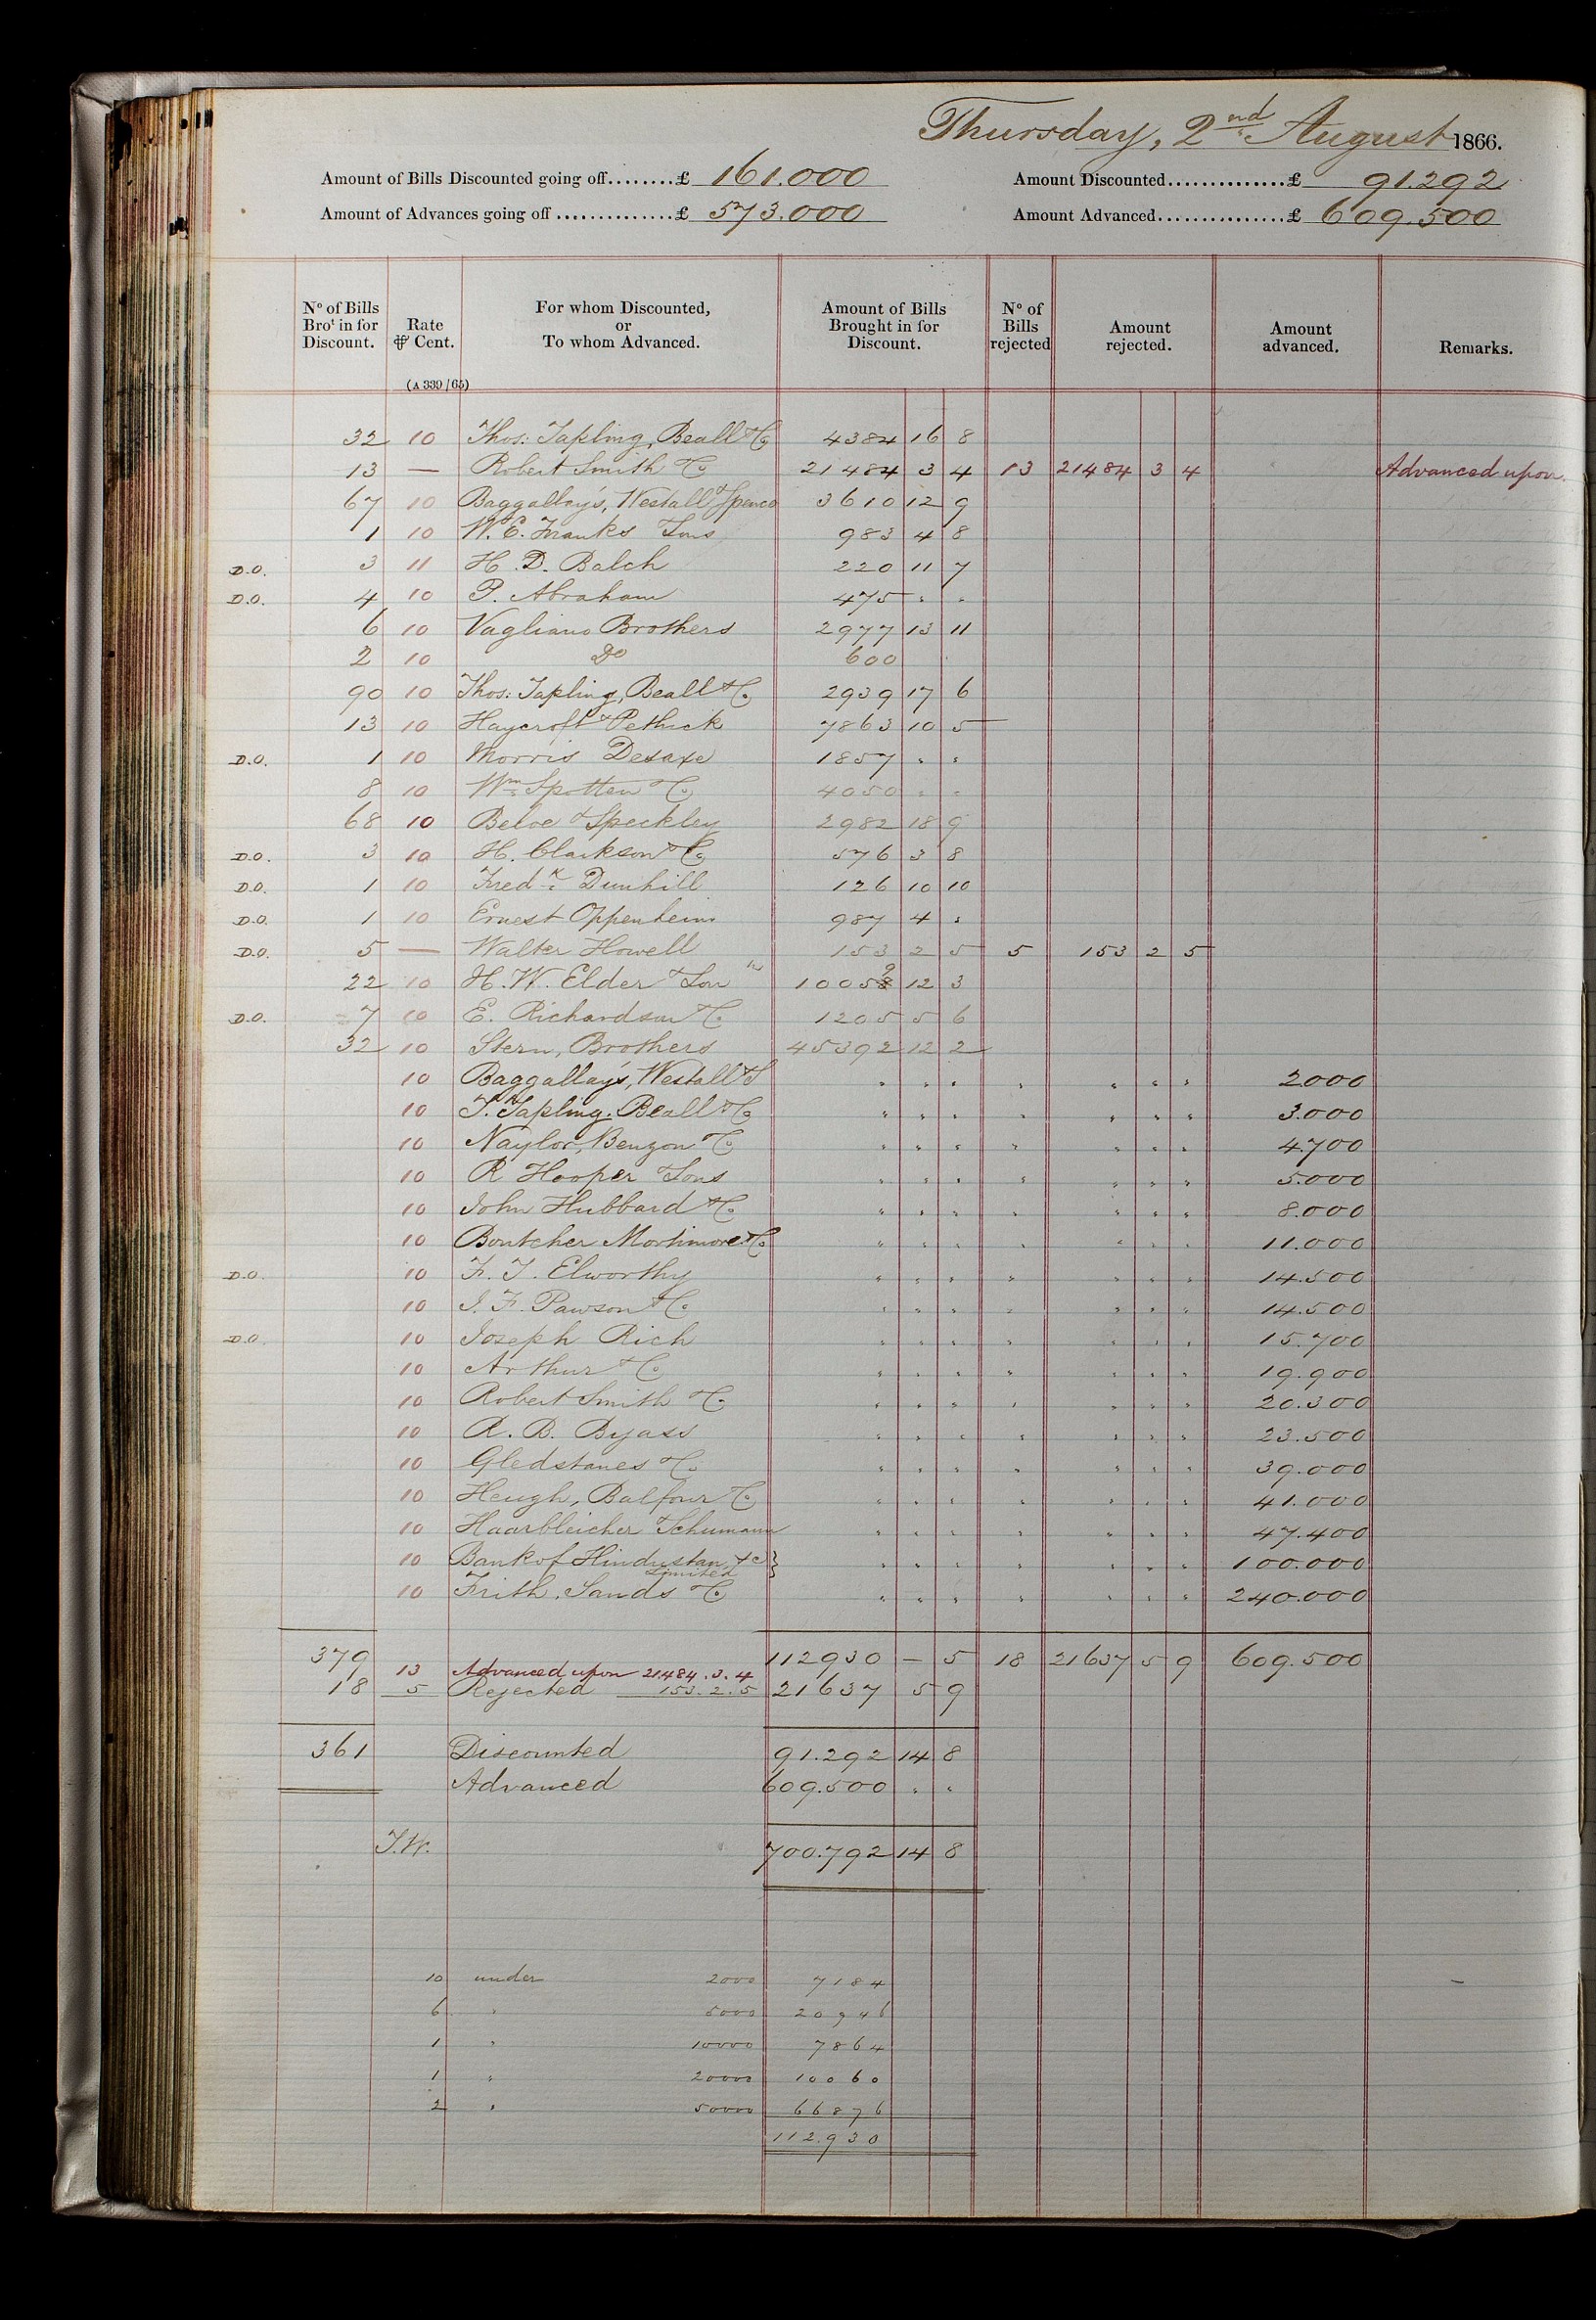 Thursday, 2nd August 1866.
Amount of Bills Discounted going off........£ 161.000 Amount Discounted..............£ 91.292
Amount of Advances going off..............£ 573.000 Amount Advanced................£ 609.500
No of Bills Brot in for Discount. Rate ⅌ Cent. (A 339/65) For whom Discounted, or To whom Advanced. Amount of Bills Brought in for Discount. No of Bills rejected Amount rejected. Amount advanced. Remarks.
32 10 Thos: Tapling, Beall & Co 4384 16 8
13 — Robert Smith & Co 21484 3 4 13 21484 3 4 Advanced upon.
67 10 Baggallay's, Westall & Spence 3610 12 9
1 10 W. E. Franks & Sons 983 4 8
D.O. 3 11 H. D. Balch 220 11 7
D.O. 4 10 P. Abraham 475 " "
6 10 Vagliano Brothers 2977 13 11
2 10 Do 600
90 10 Thos: Tapling, Beall & Co 2939 17 6
13 10 Haycroft & Pethick 7863 10 5
D.O. 1 10 Morris Desaxe 1857 " "
8 10 Wm Spotten & Co 4050 " "
68 10 Beloe & Speckley 2982 18 9
D.O. 3 10 H. Clarkson & Co 576 3 8
D.O. 1 10 Fredk Dunhill 126 10 10
D.O. 1 10 Ernest Oppenheim 987 4 "
D.O. 5 — Walter Howell 153 2 5 5 153 2 5
22 10 H. W. Elder & Son 10059 12 3
D.O. 7 10 E. Richardson & Co 1205 5 6
32 10 Stern, Brothers 45392 12 2
10 Baggallay's, Westall & S " " " " " " " 2000
10 T. Tapling. Beall & Co " " " " " " " 3.000
10 Naylor, Benzon & Co " " " " " " " 4.700
10 R Hooper & Sons " " " " " " " 5.000
10 John Hubbard & Co " " " " " " " 8.000
10 Boutcher Mortimore & Co " " " " " " " 11.000
D.O. 10 F. T. Elworthy " " " " " " " 14.500
10 J. F. Pawson & Co " " " " " " " 14.500
D.O. 10 Joseph Rich " " " " " " " 15.700
10 Arthur & Co " " " " " " " 19.900
10 Robert Smith & Co " " " " " " " 20.300
10 R. B. Byass " " " " " " " 23.500
10 Gledstanes & Co " " " " " " " 39.000
10 Heugh, Balfour & Co " " " " " " " 41.000
10 Haarbleicher & Schumann " " " " " " " 47.400
10 Bank of Hindustan, &c } Limited " " " " " " " 100.000
10 Frith, Sands & Co " " " " " " " 240.000
379 112930 — 5 18 21637 5 9 609.500
13 Advanced upon 21.484.3.4
18 5 Rejected 153.2.5 21637 5 9
361 Discounted 91.292 14 8
Advanced 609.500 " "
J.W. 700.792 14 8
10 under 2000 7184
6 " 5000 20946
1 " 10000 7864
1 " 20000 10060
2 " 50000 66876
112.930